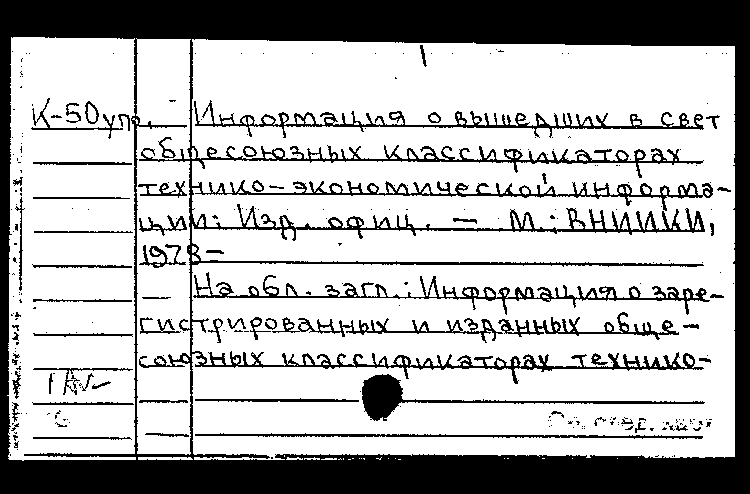 К-50упр. Информация о вышедших в свет
общесоюзных классификаторах
технико-экономической информа-
ции: Изд. офиц. — М.: ВНИИКИ,
1978-
На обл. загл.: Информация о заре-
гистрированных и изданных обще-
союзных классификаторах технико-
См. след. карт